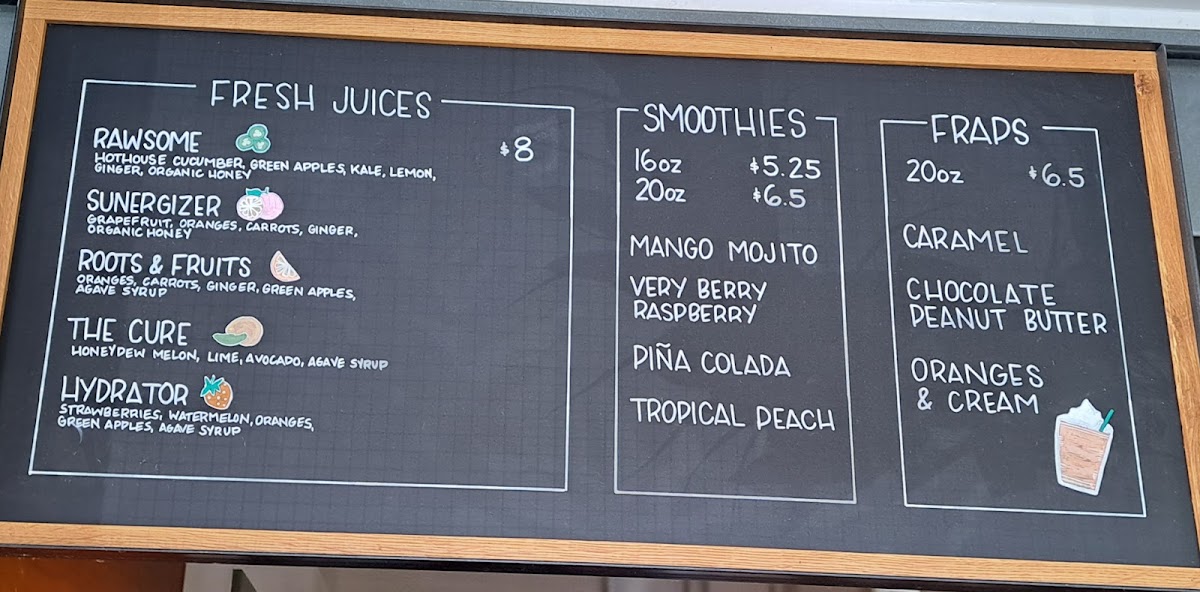 FRESH JUICES
RAWSOME
$8
HOTHOUSE CUCUMBER, GREEN APPLES, KALE, LEMON,
GINGER, ORGANIC HONEY
SUNERGIZER
GRAPEFRUIT, ORANGES, CARROTS, GINGER,
ORGANIC HONEY
ROOTS & FRUITS
ORANGES, CARROTS, GINGER, GREEN APPLES,
AGAVE SYRUP
THE CURE
HONEYDEW MELON, LIME, AVOCADO, AGAVE SYRUP
HYDRATOR
STRAWBERRIES, WATERMELON, ORANGES,
GREEN APPLES, AGAVE SYRUP
SMOOTHIES
16oz $5.25
20oz $6.5
MANGO MOJITO
VERY BERRY
RASPBERRY
PIÑA COLADA
TROPICAL PEACH
FRAPS
20oz $6.5
CARAMEL
CHOCOLATE
PEANUT BUTTER
ORANGES
& CREAM